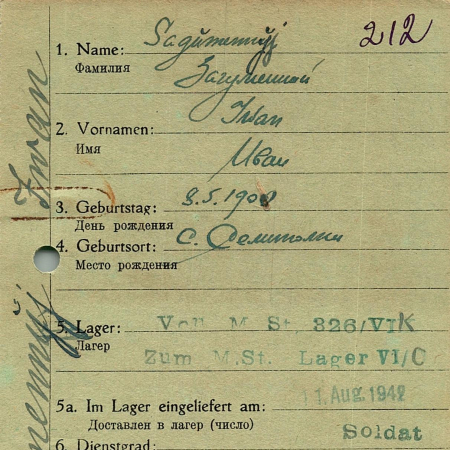 212
1. Name: Sagumennyj
Фамилия Загуменной
Iwan
2. Vornamen:
Имя
Иван
3. Geburtstag: 8.5.1908
День рождения
4. Geburtsort: С.
Место рождения
5. Lager: Von M. St. 326/VIK
Лагер
Zum M.St. Lager VI/C
11. Aug. 1942
5a. Im Lager eingeliefert am:
Доставлен в лагер (число)
Soldat
6. Dienstgrad:
Iwan